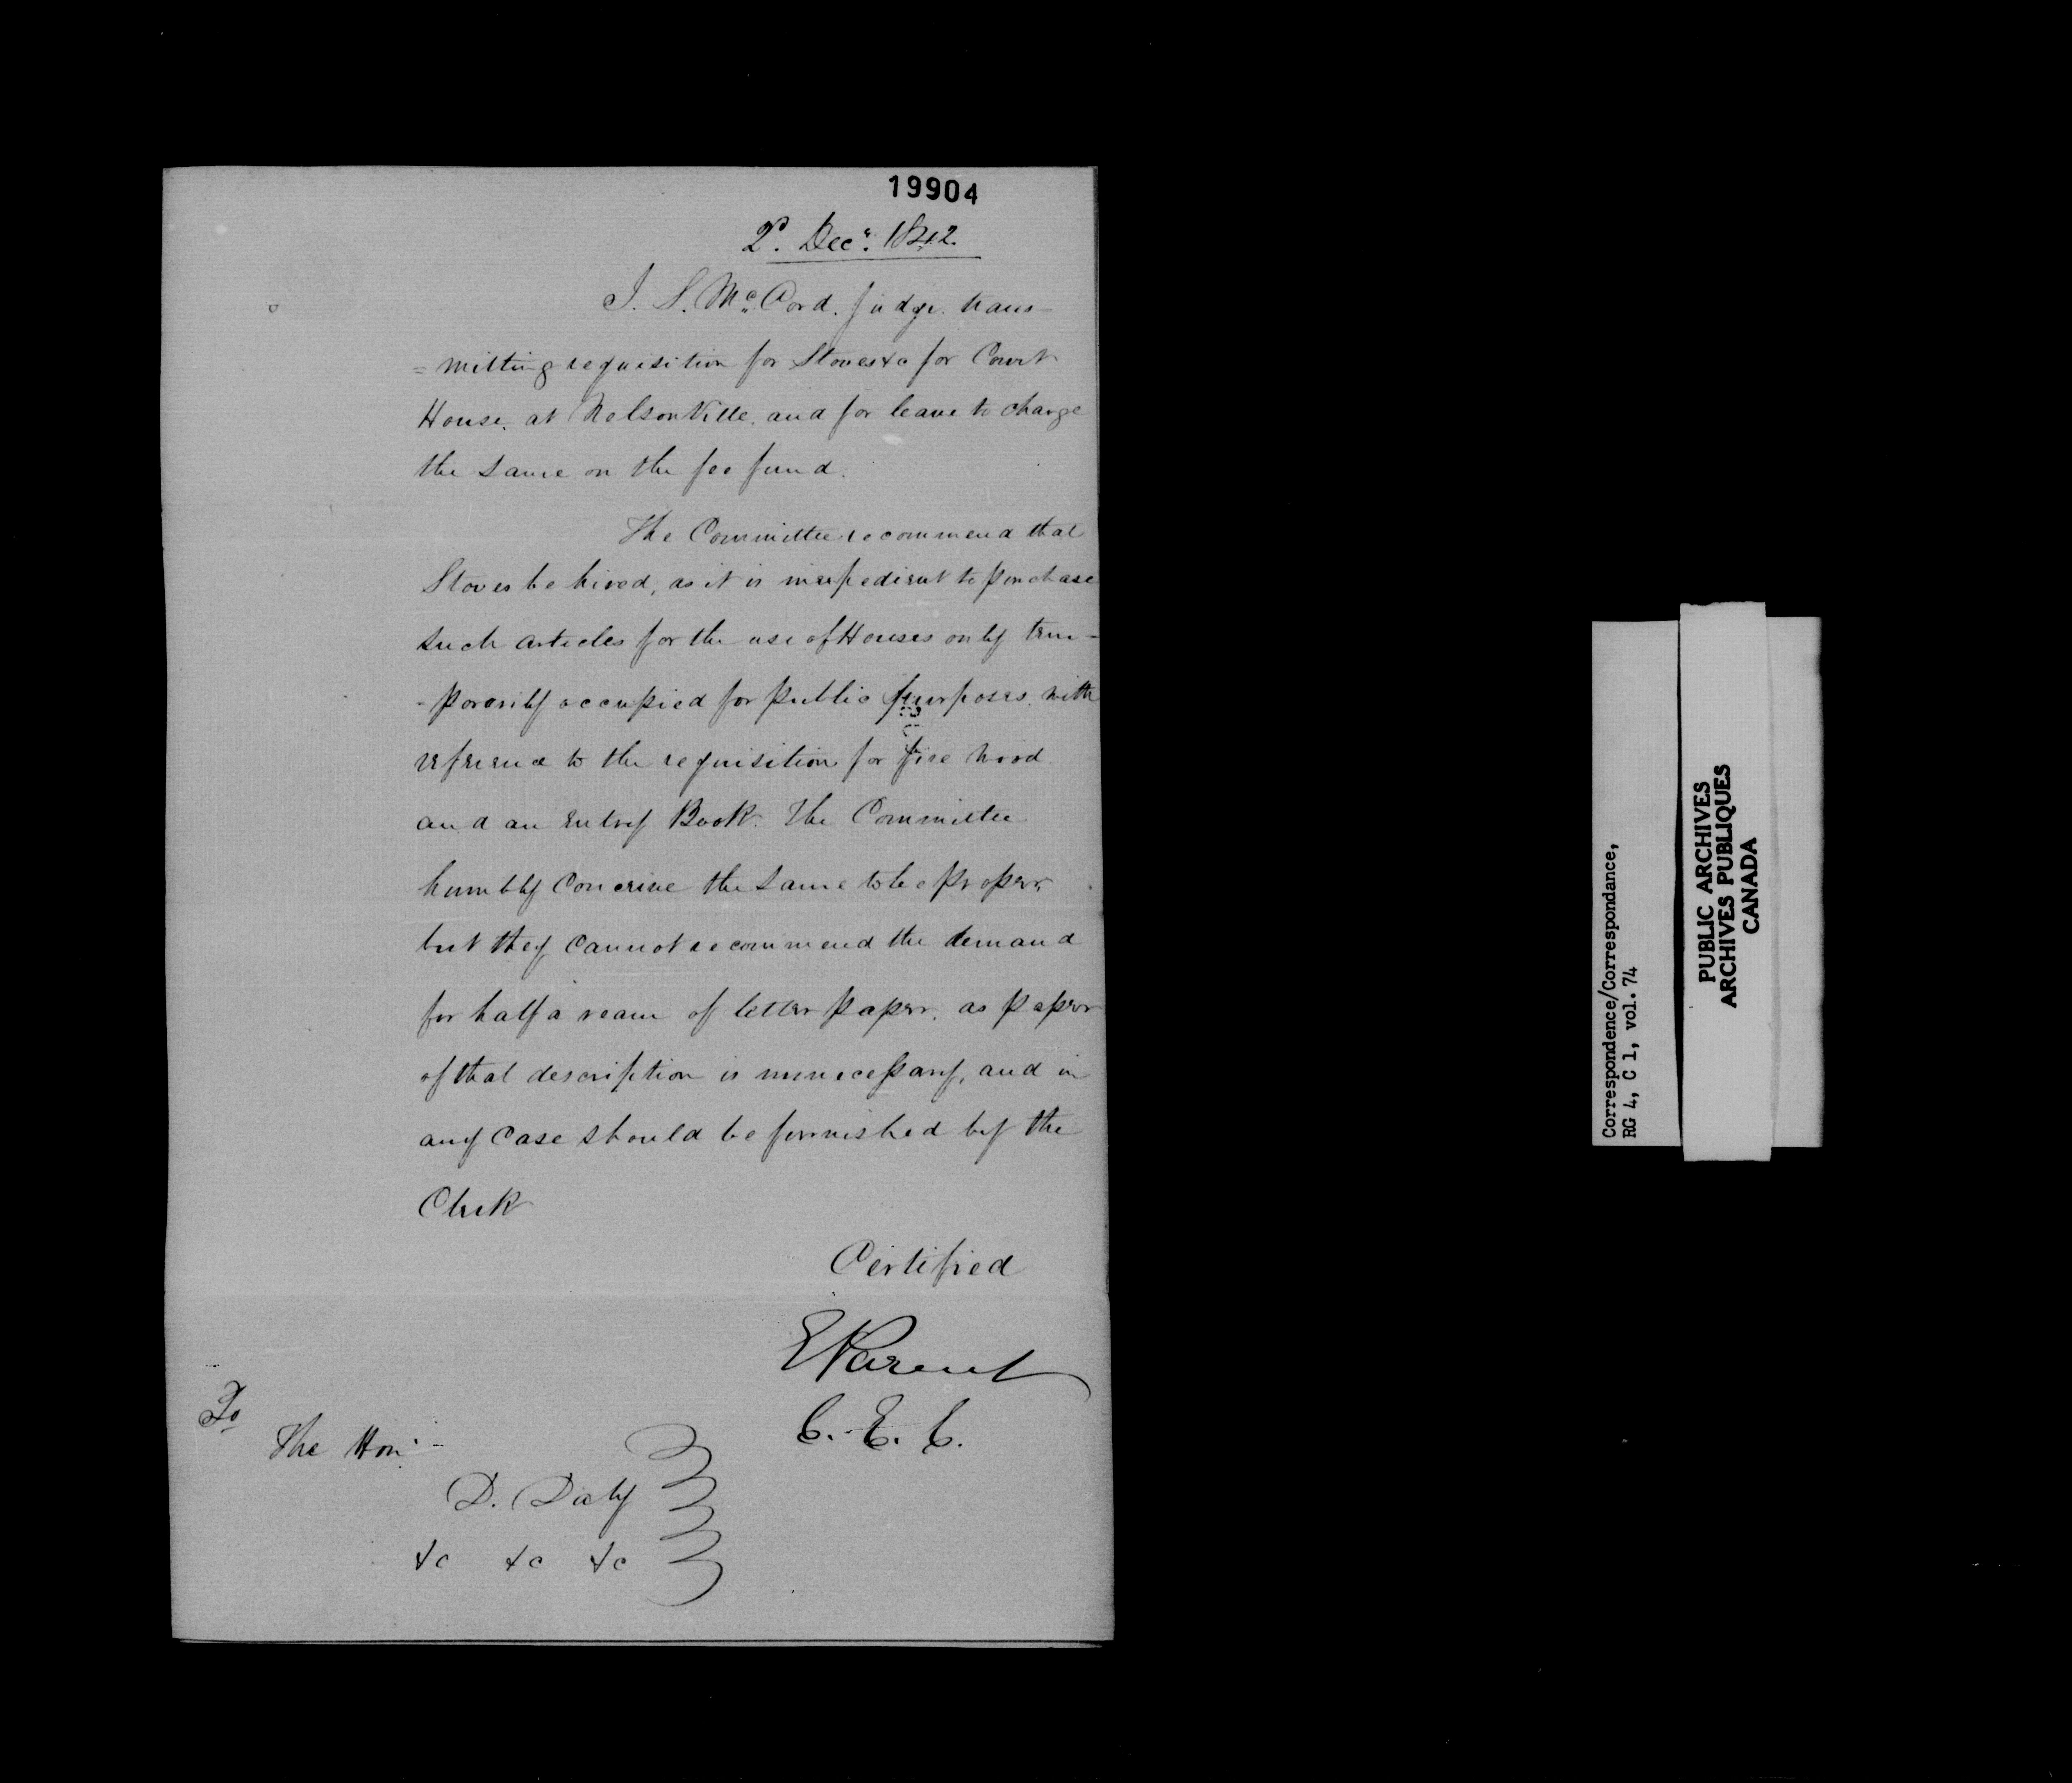 19904
2d. Decr. 1842.
J. S. McCord. Judge. trans-
=mitting requisition for Stoves &c for Court
House, at NelsonVille, and for leave to charge
the same on the fee fund.
The Committee recommend that
Stoves be hired, as it is inexpedient to purchase
such articles for the use of Houses only tem-
-porarily occupied for public purposes, with
reference to the requisition for fire wood
and an Entry Book. The Committee
humbly Conceive the same to be proper,
but they cannot recommend the demand
for half a ream of letter paper, as paper
of that description is unnecessary, and in
any Case should be furnished by the
Clerk
Certified
E Parent
C. E. C.
To
The Hon:
D. Daly
&c &c &c
Correspondence/Correspondance,
RG 4, C 1, vol. 74
PUBLIC ARCHIVES
ARCHIVES PUBLIQUES
CANADA